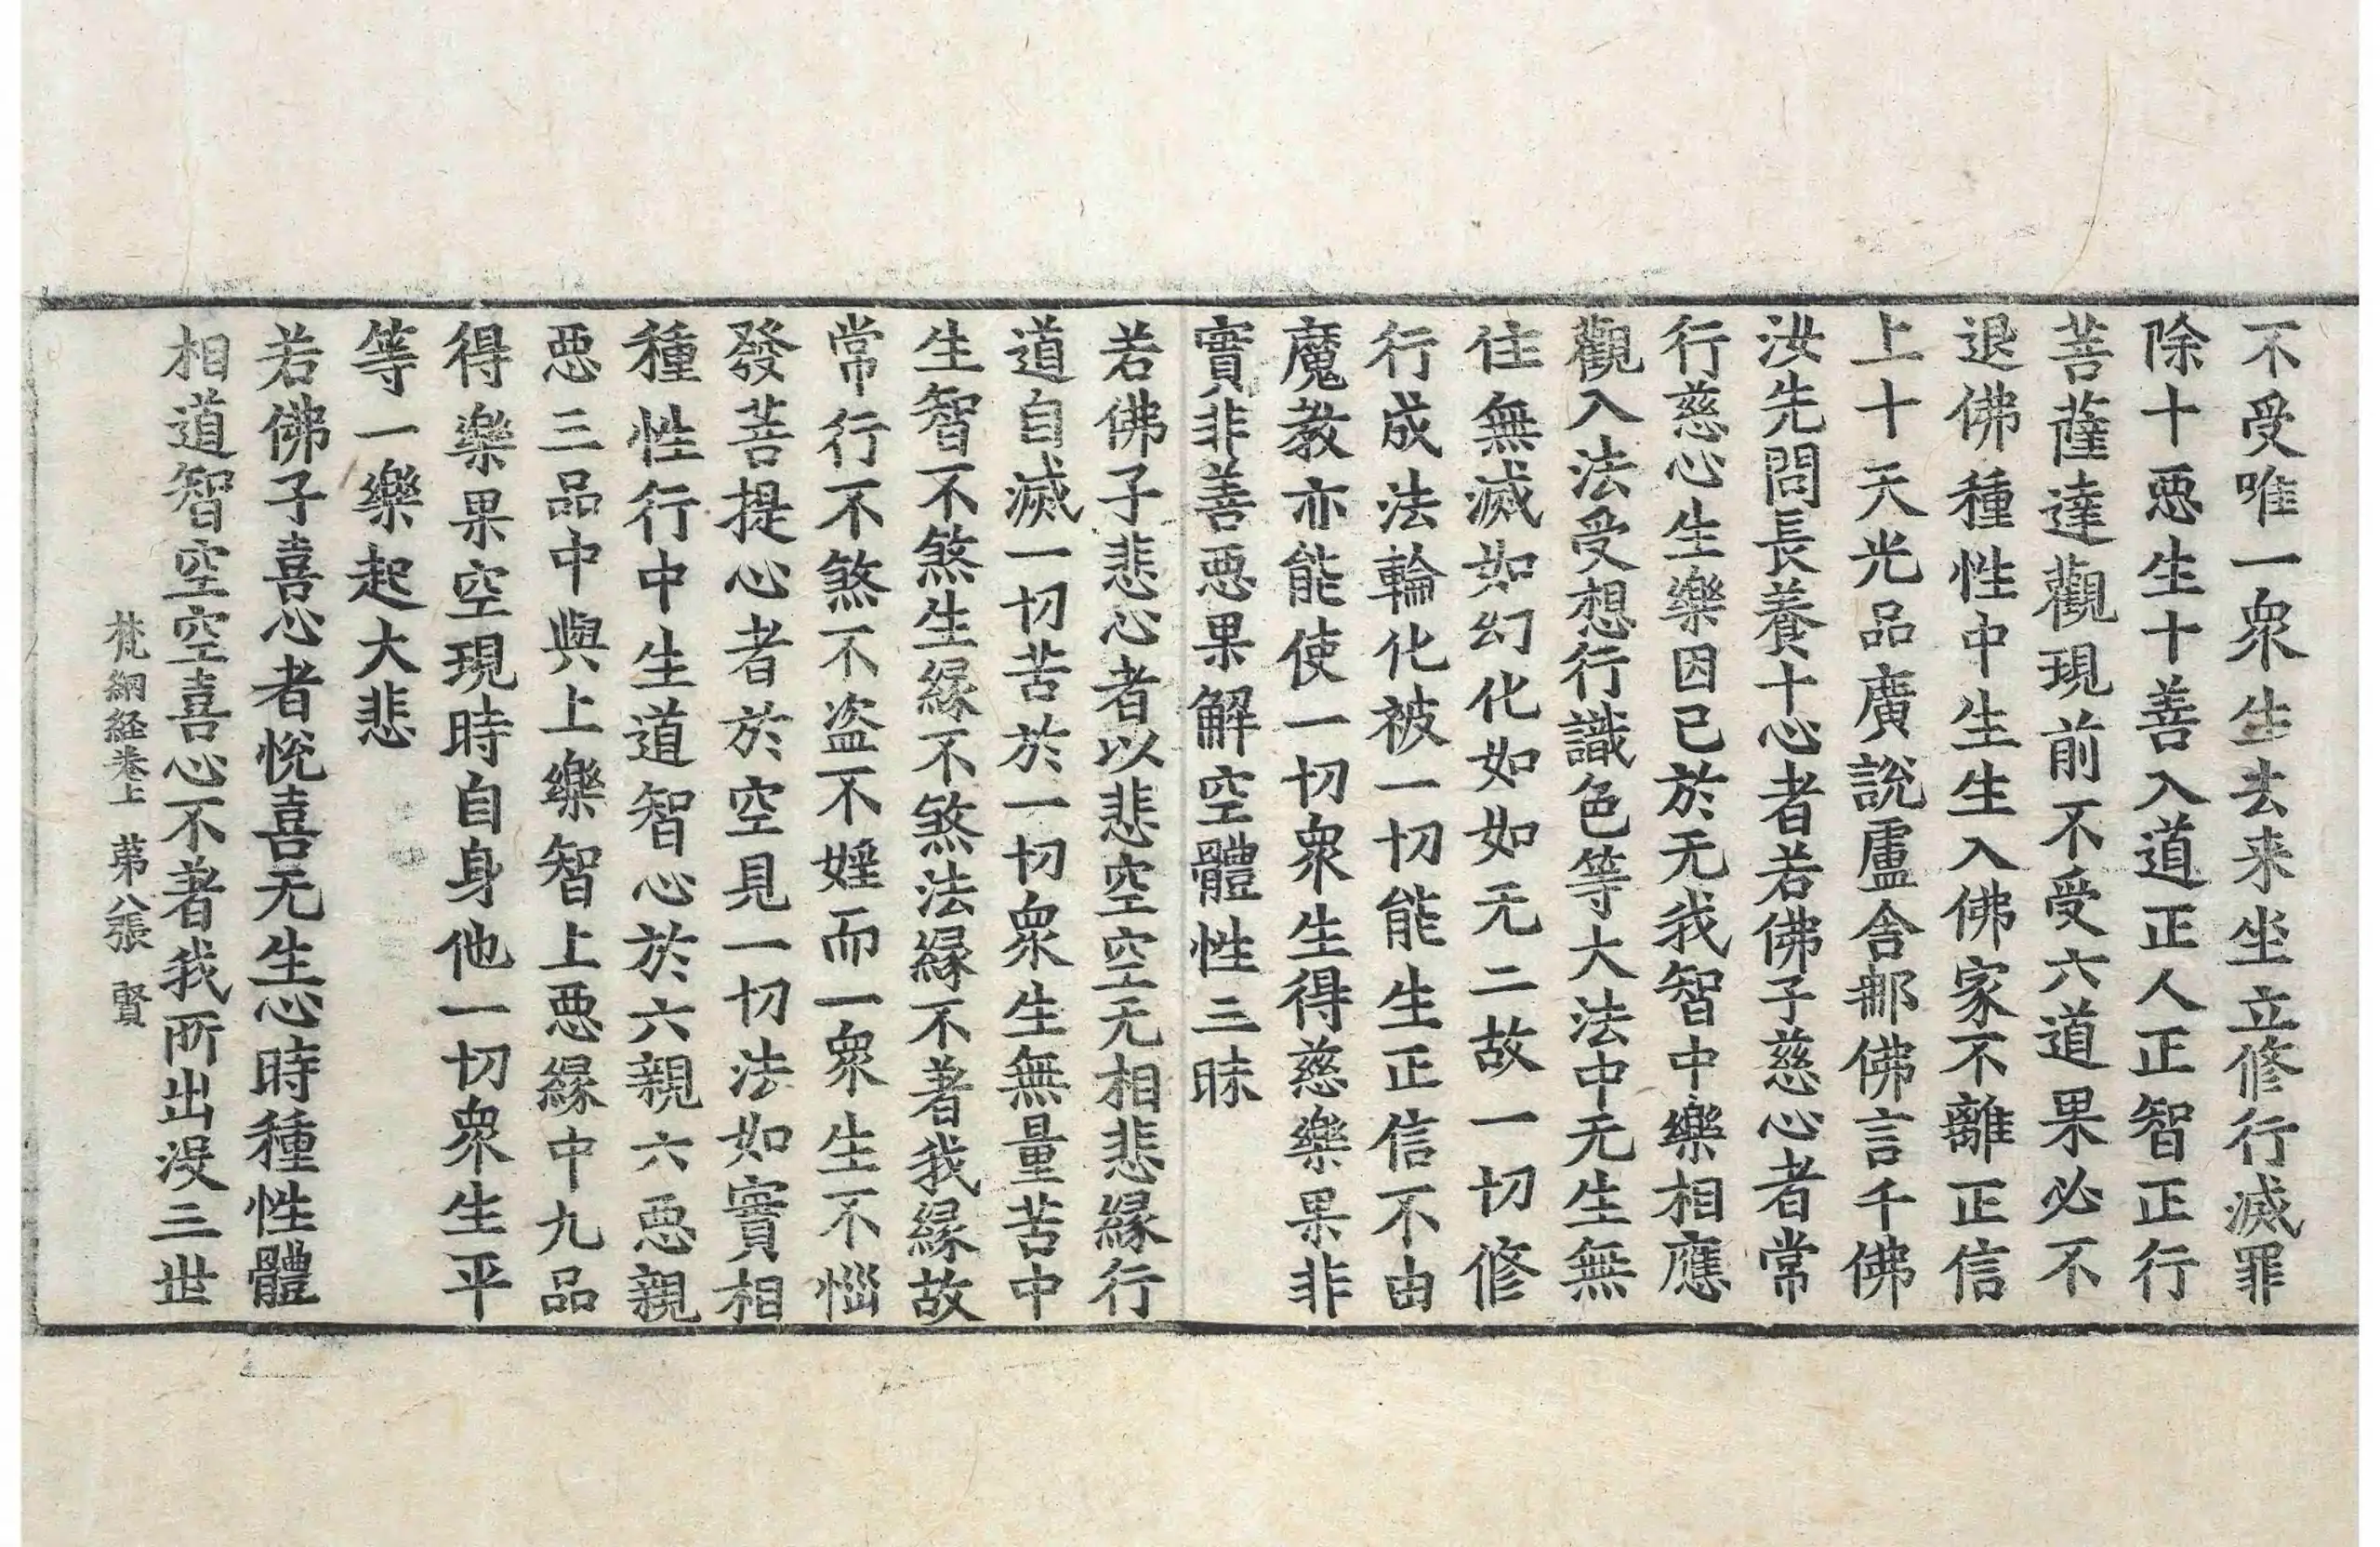 不受唯一衆生去来坐立修行滅罪
除十惡生十善入道正人正智正行
菩薩達觀現前不受六道果必不
退佛種性中生生入佛家不離正信
上十天光品廣說盧舍那佛言千佛
汝先問長養十心者若佛子慈心者常
行慈心生樂因已於无我智中樂相應
觀入法受想行識色等大法中无生無
住無滅如幻化如如无二故一切修
行成法輪化被一切能生正信不由
魔教亦能使一切衆生得慈樂果非
實非善惡果解空體性三昧
若佛子悲心者以悲空空无相悲緣行
道自滅一切苦於一切衆生無量苦中
生智不煞生緣不煞法緣不著我緣故
常行不煞不盗不婬而一衆生不惱
發菩提心者於空見一切法如實相
種性行中生道智心於六親六惡親
惡三品中與上樂智上惡緣中九品
得樂果空現時自身他一切衆生平
等一樂起大悲
若佛子喜心者悅喜无生心時種性體
相道智空空喜心不著我所出没三世
梵網経卷上 苐八張 賢